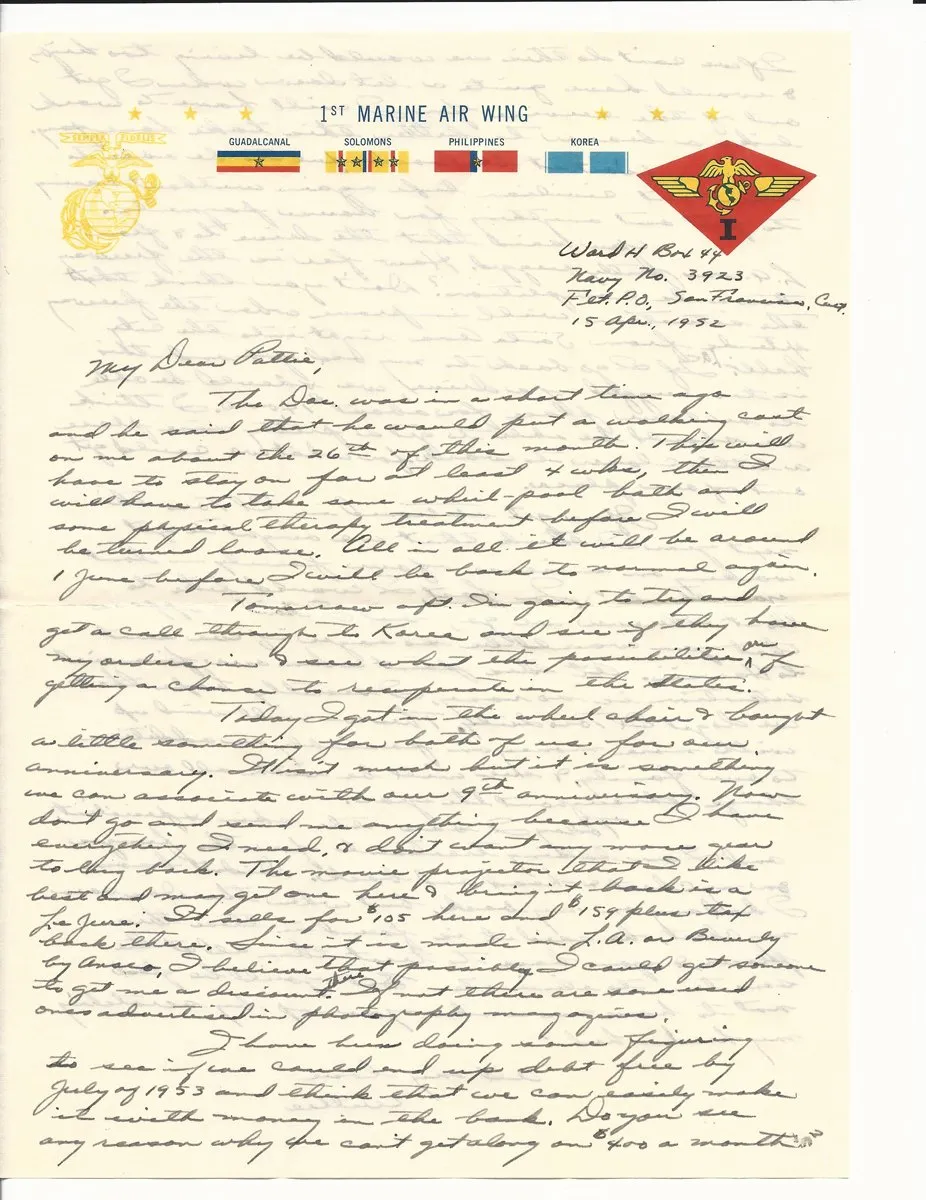 1ST MARINE AIR WING
GUADALCANAL SOLOMONS PHILIPPINES KOREA
SEMPER FIDELIS
I
Ward H Box 44
Navy No. 3923
Flt. P.O., San Francisco, Calif.
15 Apr., 1952
My Dear Pattie,
The Doc. was in a short time ago
and he said that he would put a walking cast
on me about the 26th of this month. This will
have to stay on for at least 4 wks, then I
will have to take some whirl-pool bath and
some physical therapy treatment before I will
be turned loose. All in all it will be around
1 June before I will be back to normal again.
Tomorrow aft. I'm going to try and
get a call through to Korea and see if they have
my orders in & see what the possibilities are of
getting a chance to recuperate in the States.
Today I got in the wheel chair & bought
a little something for both of us for our
anniversary. It isn't much but it is something
we can associate with our 9th anniversary. Now
don't go and send me anything because I have
everything I need, & don't want any more gear
to lug back. The movie projector that I like
best and may get one here & bring it back is a
De Jure. It sells for $105 here and $159 plus tax
back there. Since it is made in L.A. or Beverly
by Ansco, I believe that possibly I could get someone
to get me a discount. If not there are some used
ones advertised in photography magazines.
I have been doing some figuring
to see if we could end up debt free by
July of 1953 and think that we can easily make
it with money in the bank. Do you see
any reason why we can't get along on $400 a month?